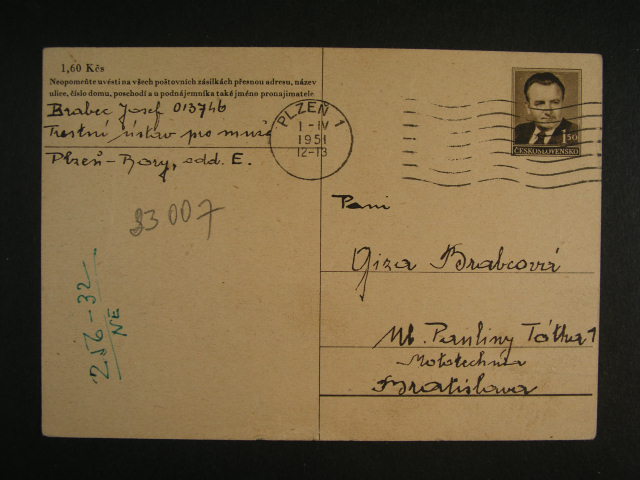 1,60 Kčs
Neopomeňte uvésti na všech poštovních zásilkách přesnou adresu, název
ulice, číslo domu, poschodí a u podnájemníka také jméno pronajímatele
Brabec Josef 013746
Trestní ústav pro muže
Plzeň-Bory, odd. E.
PLZEŇ 1
1-IV
1951
12-13
1,50
ČESKOSLOVENSKO
83007
256-32
NE
Pani
Giza Brabcová
Ul. Pauliny Tótha 1
Mototechna
Bratislava